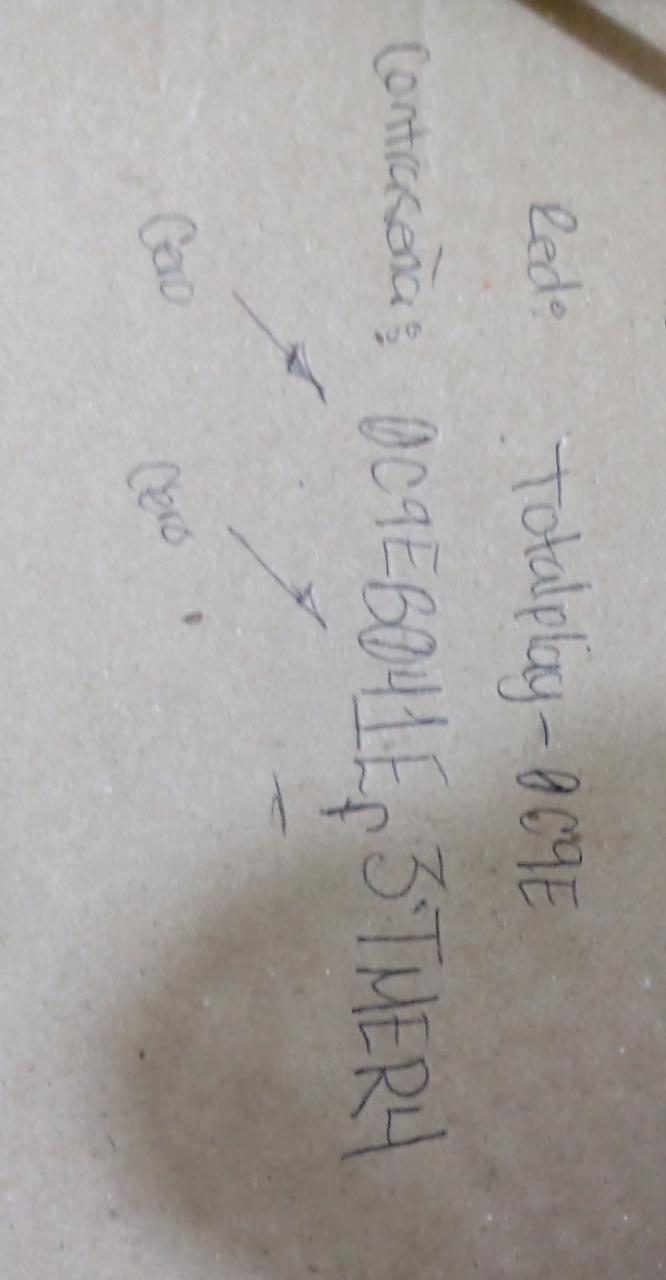 Red: Totalplay-0C9E
Contraseña: 0C9EB041EF3TMER4
Cero Cero